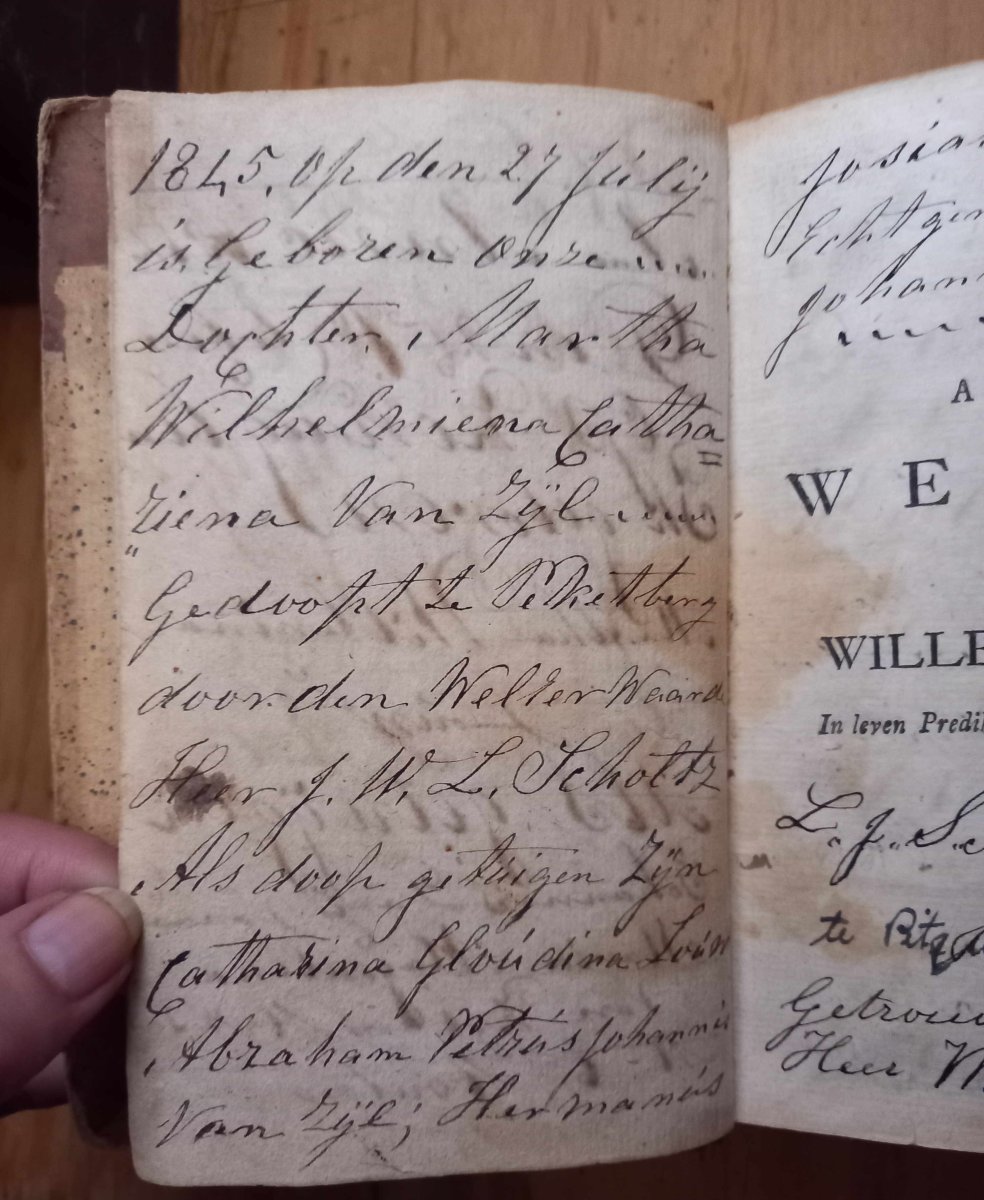 1845, Op den 27 Júlÿ
is Geboren Onze
Dochter, Martha
Wilhelmiena Catha=
"riena Van Zÿl
Gedoopt te Piketberg
door den Welker Waarde
Heer J. W. L. Scholtz
Als doop getúigen Zÿn
Catharina Gloúdina Loúw
Abraham Petrús Johannis
Van Zÿl; Hermanús
Josia
Echtgen
Johan
A
WE
WILLE
In leven Predi
L. J. S
te
Getrou
Heer